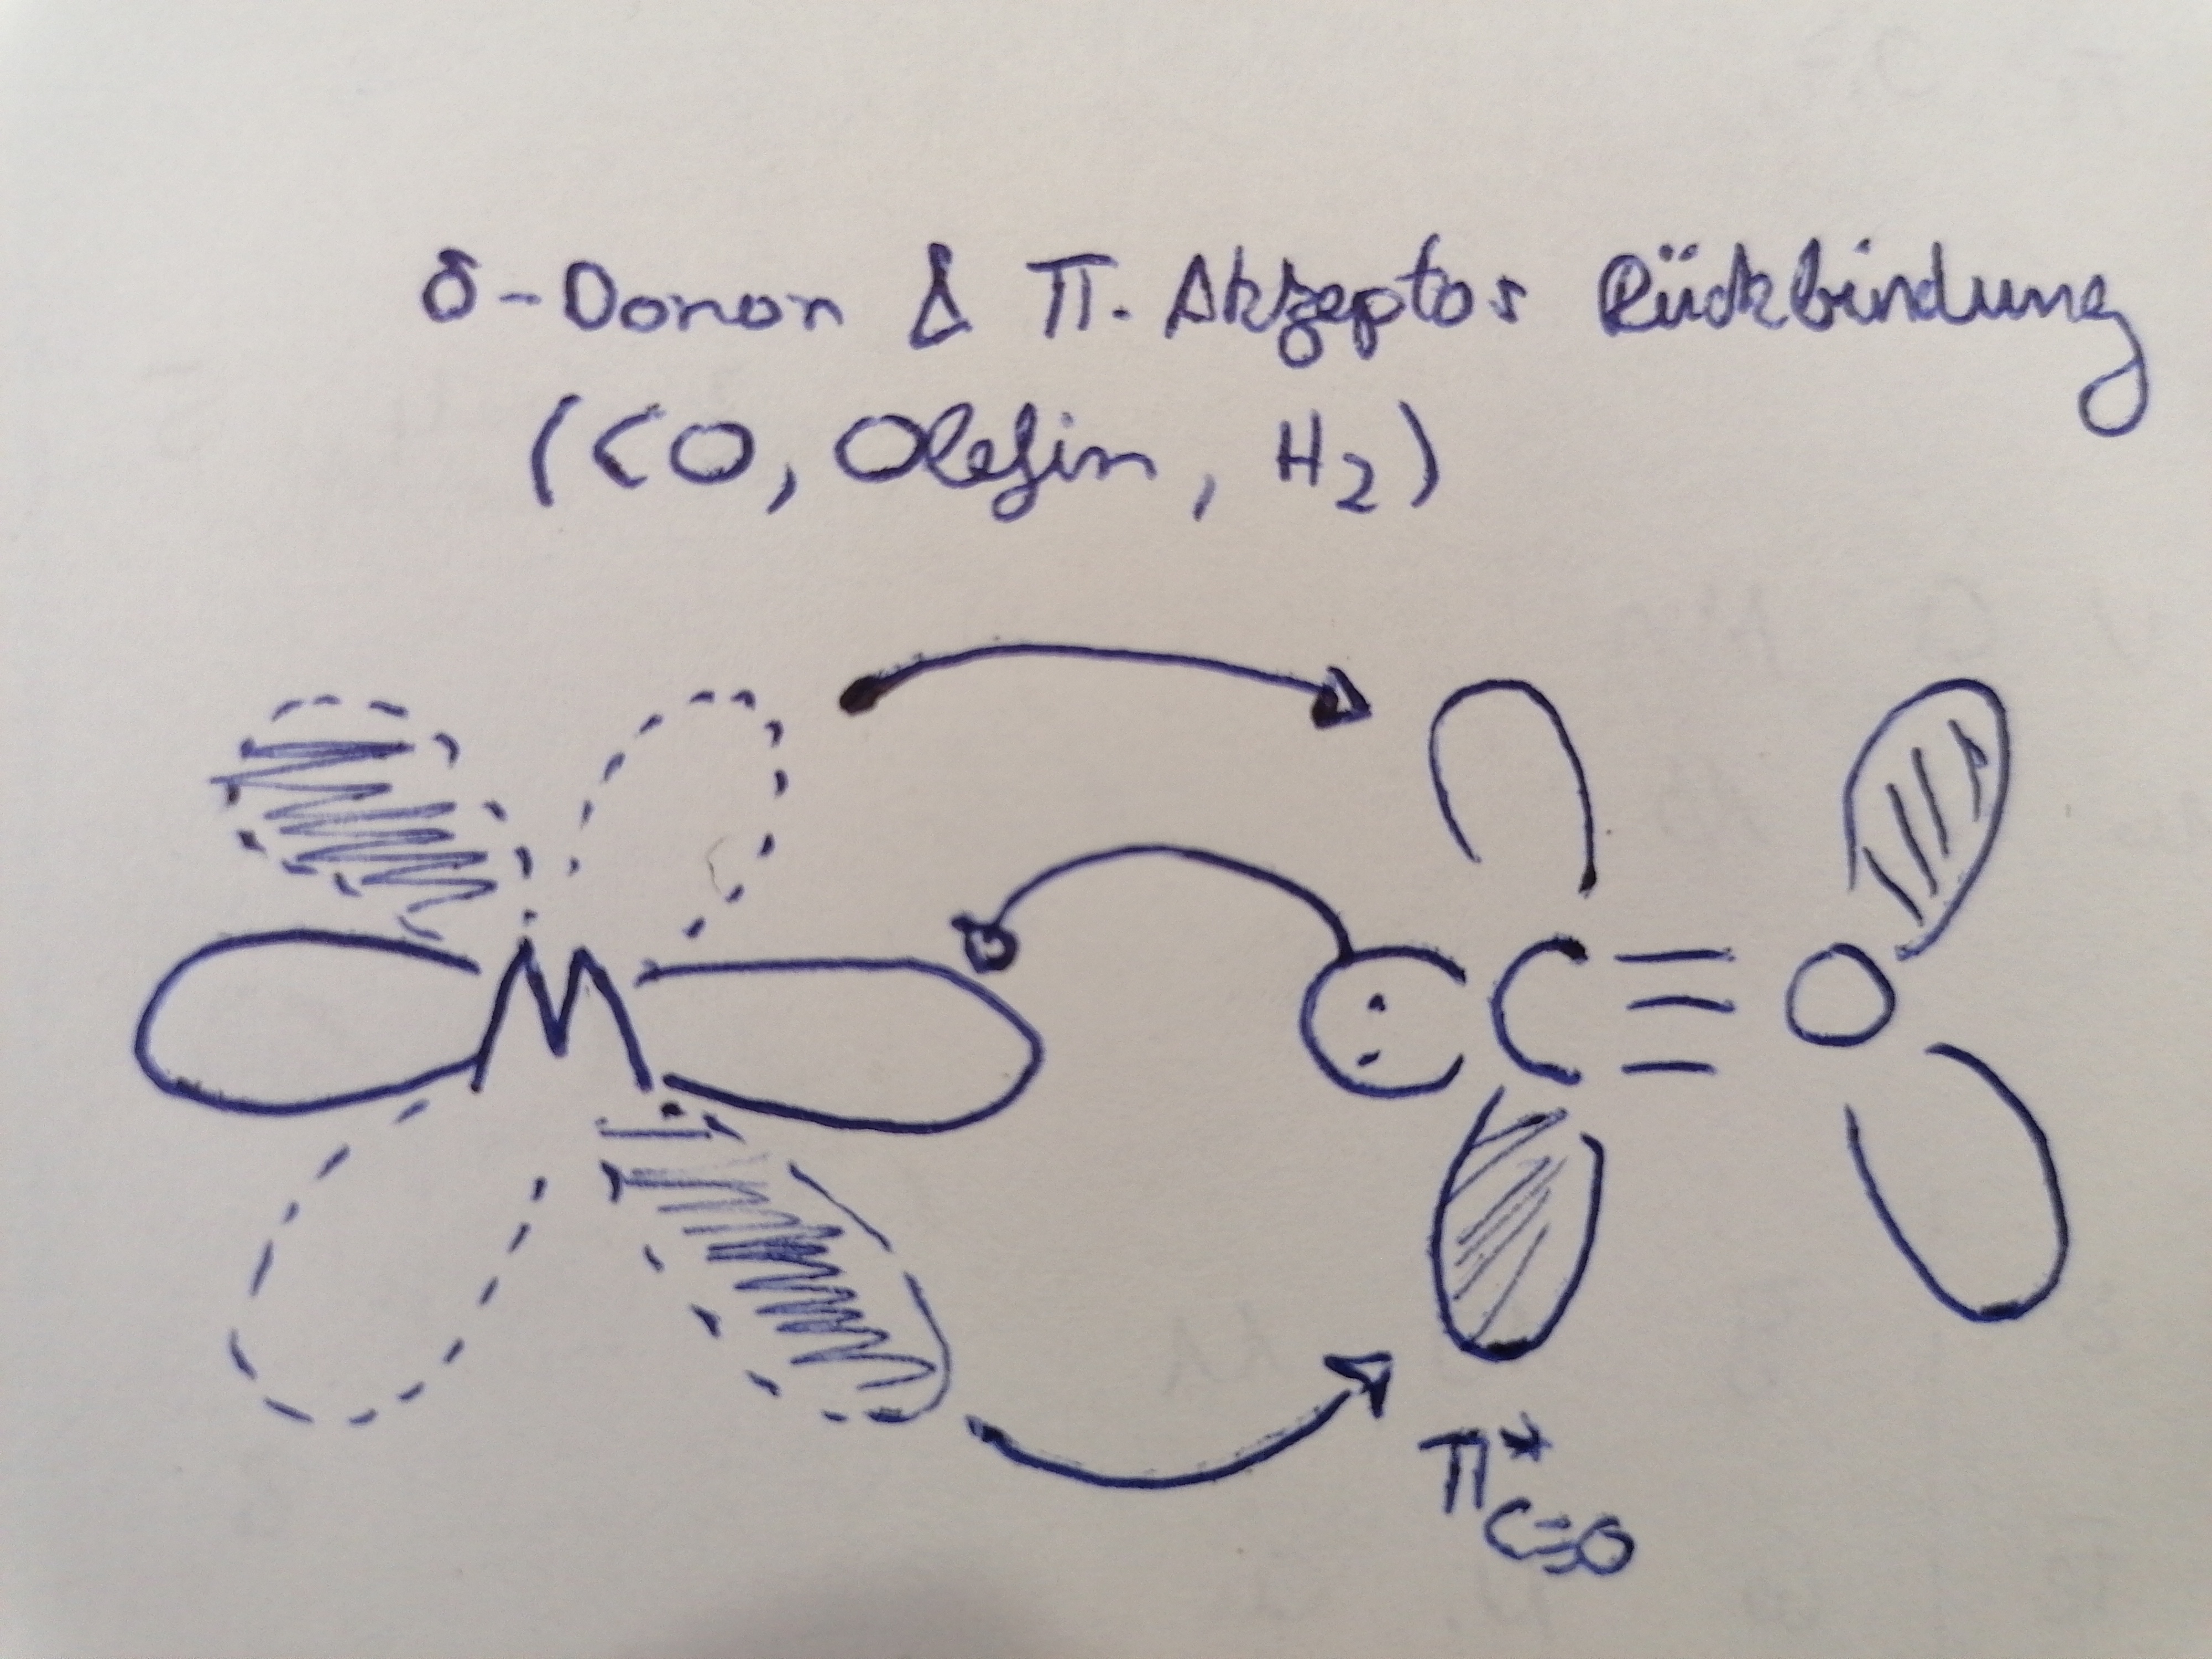 δ-Donor & π-Akzeptor Rückbindung
(CO, Olefin, H₂)
M :C≡O
π*C≡O